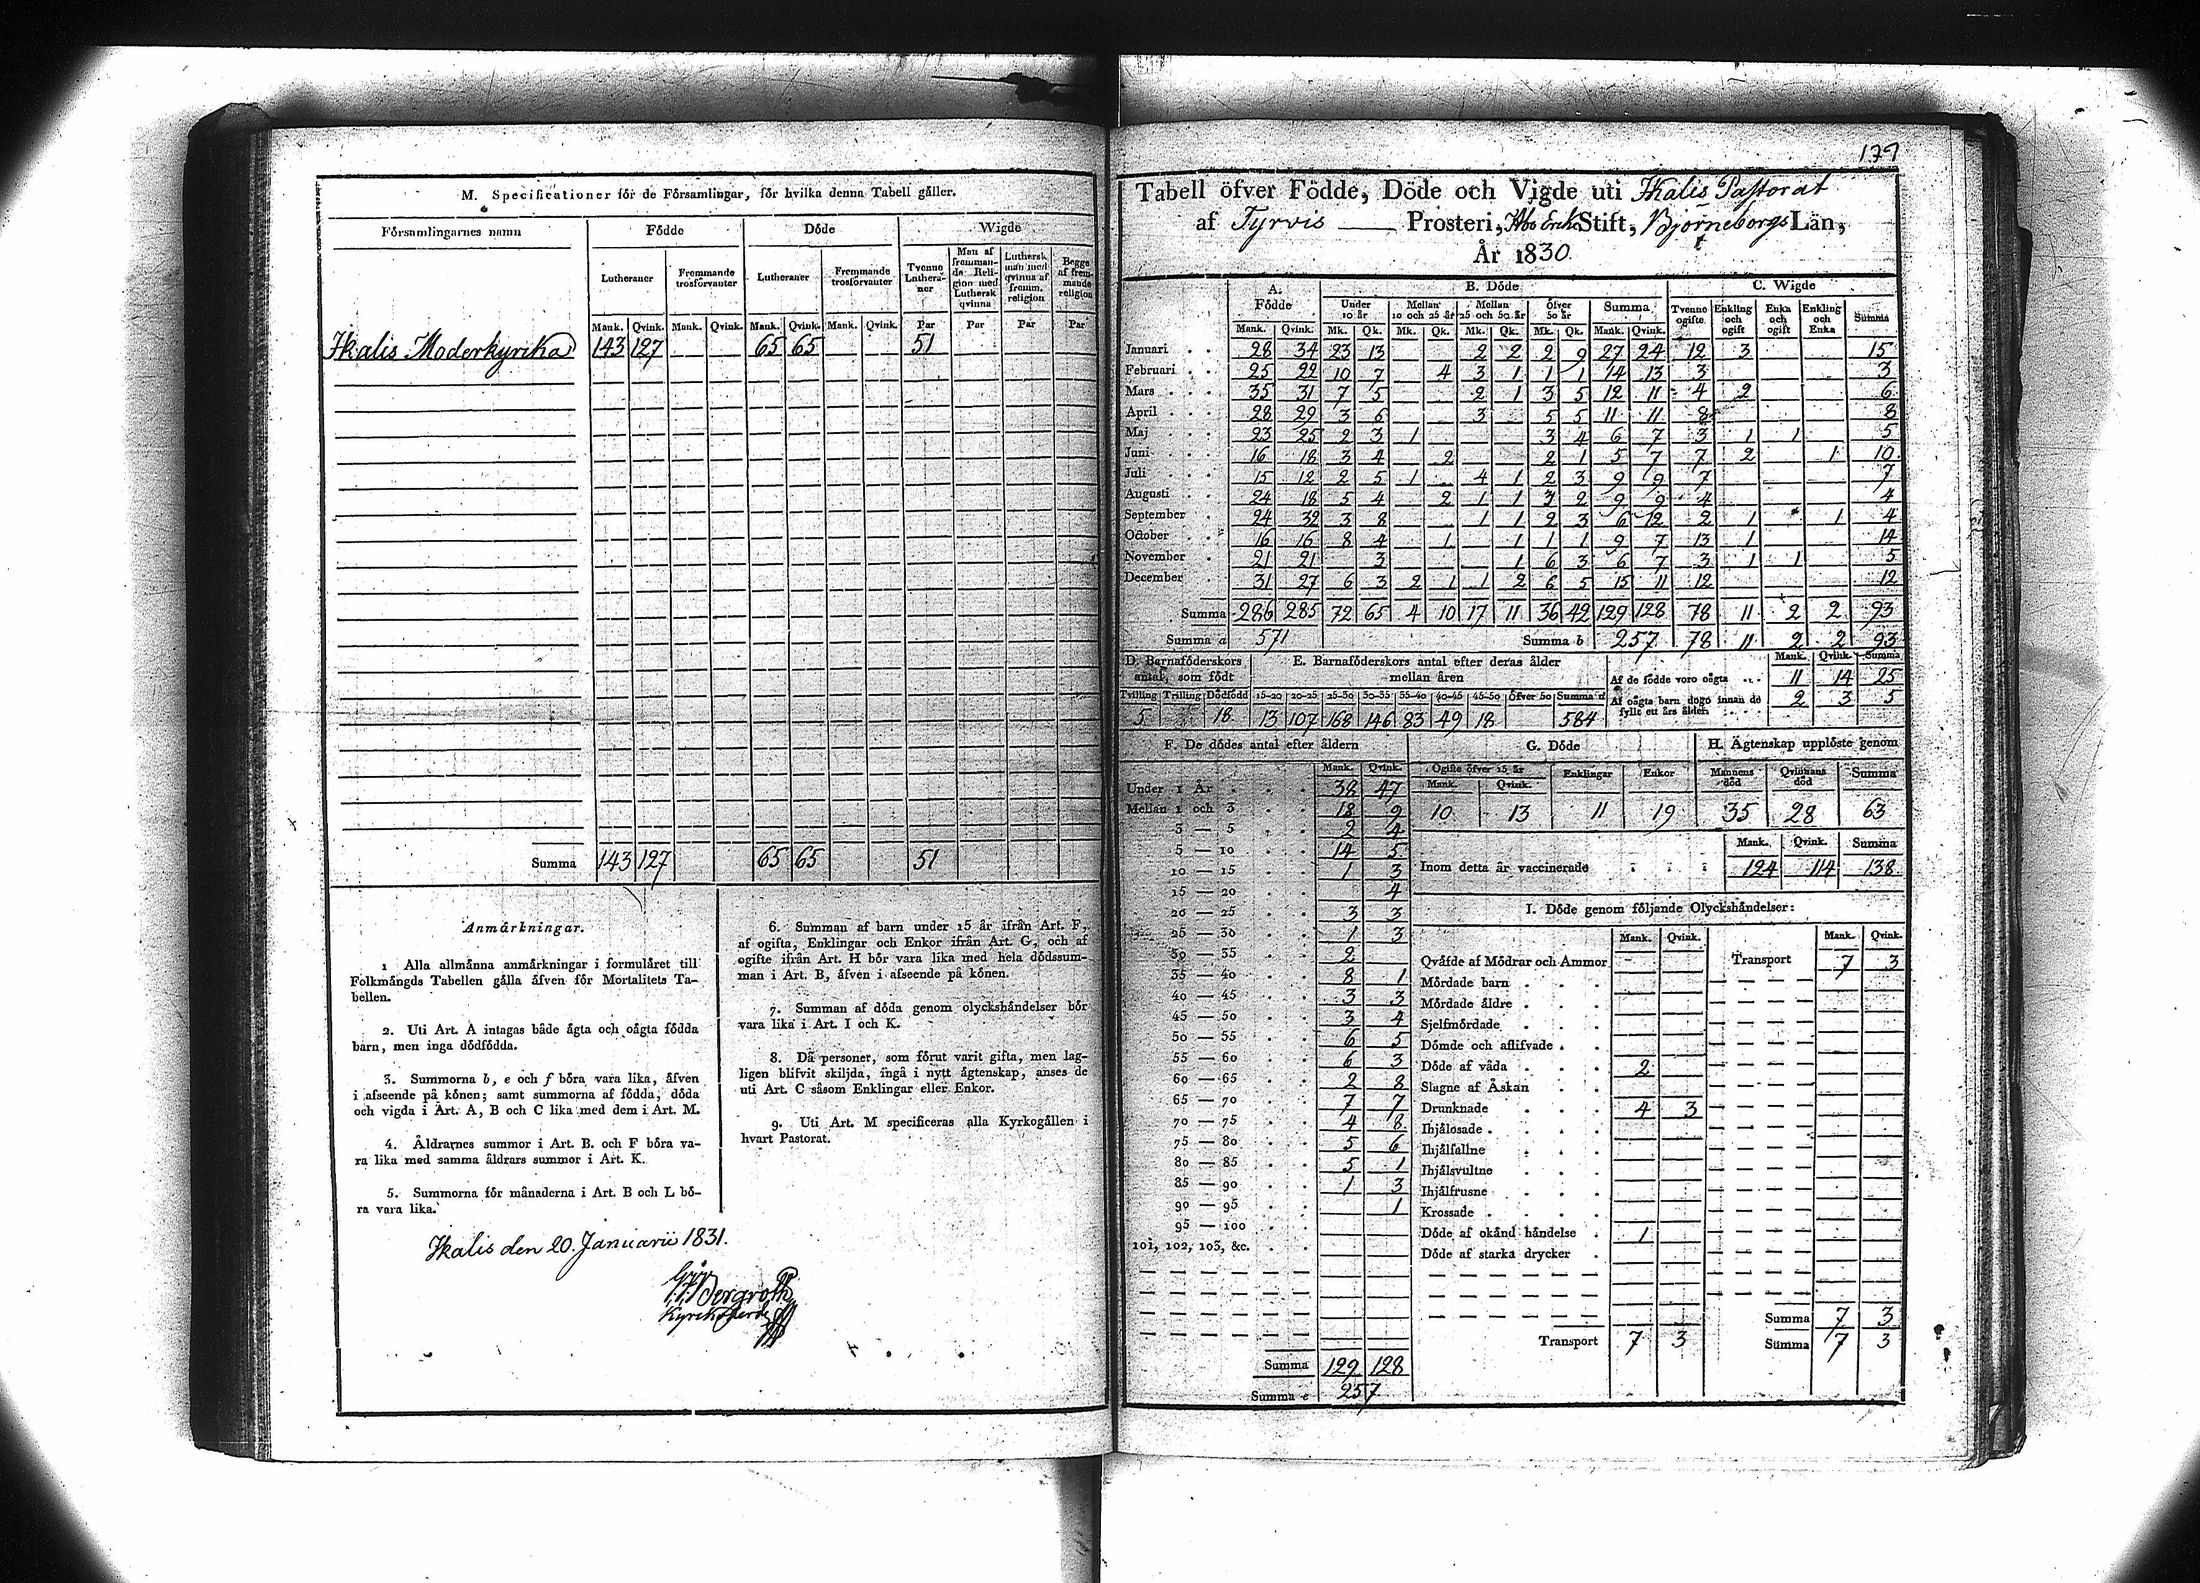 M. Specificationer för de Församlingar, för hvilka denna Tabell gäller.
Församlingarnes namn Födde Döde Wigde
Lutheraner Fremmande trosförvanter Lutheraner Fremmande trosförvanter Tvenne Lutheraner Man af fremmande Religion med Luthersk qvinna Luthersk man med qvinna af fremm. religion Begge af fremmande religion
Mank. Qvink. Mank. Qvink. Mank. Qvink. Mank. Qvink. Par Par Par Par
Ikalis Moderkyrka 143 127 65 65 51
Summa 143 127 65 65 51
Anmärkningar.
1 Alla allmänna anmärkningar i formuläret till
Folkmängds Tabellen gälla äfven för Mortalitets Ta-
bellen.
2. Uti Art. A intagas både ägta och oägta födda
barn, men inga dödfödda.
3. Summorna b, e och f böra vara lika, äfven
i afseende på könen; samt summorna af födda, döda
och vigda i Art. A, B och C lika med dem i Art. M.
4. Åldrarnes summor i Art. B. och F böra va-
ra lika med samma åldrars summor i Art. K.
5. Summorna för månaderna i Art. B och L bö-
ra vara lika.
6. Summan af barn under 15 år ifrån Art. F,
af ogifta, Enklingar och Enkor ifrån Art. G, och af
ogifte ifrån Art. H bör vara lika med hela dödssum-
man i Art. B, äfven i afseende på könen.
7. Summan af döda genom olyckshändelser bör
vara lika i Art. I och K.
8. Då personer, som förut varit gifta, men lag-
ligen blifvit skiljda, ingå i nytt ägtenskap, anses de
uti Art. C såsom Enklingar eller Enkor.
9. Uti Art. M specificeras alla Kyrkogällen i
hvart Pastorat.
Ikalis den 20. Januarii 1831.
Bergroth
Kyrkoherde
179
Tabell öfver Födde, Döde och Vigde uti Ikalis Pastorat
af Tyrvis Prosteri, Åbo Erke Stift, Björneborgs Län,
År 1830.
A. Födde B. Döde C. Wigde
Under 10 år Mellan 10 och 25 år Mellan 25 och 50 år Öfver 50 år Summa Tvenne ogifte Enkling och ogift Enka och ogift Enkling och Enka Summa
Mank. Qvink. Mk. Qk. Mk. Qk. Mk. Qk. Mk. Qk. Mank. Qvink.
Januari 28 34 23 13 2 2 2 9 27 24 12 3 15
Februari 25 22 10 7 4 3 1 1 1 14 13 3 3
Mars 35 31 7 5 2 1 3 5 12 11 4 2 6
April 28 29 3 6 3 5 5 11 11 8 8
Maj 23 25 2 3 1 3 4 6 7 3 1 1 5
Juni 16 18 3 4 2 2 1 5 7 7 2 1 10
Juli 15 12 2 5 1 4 1 2 3 9 9 7 7
Augusti 24 18 5 4 2 1 1 3 2 9 9 4 4
September 24 32 3 8 1 1 2 3 6 12 2 1 1 4
October 16 16 8 4 1 1 1 1 9 7 13 1 14
November 21 21 3 1 6 3 6 7 3 1 1 5
December 31 27 6 3 2 1 1 2 6 5 15 11 12 12
Summa 286 285 72 65 4 10 17 11 36 42 129 128 78 11 2 2 93
Summa a 571 Summa b 257 78 11 2 2 93
D. Barnaföderskors antal, som födt E. Barnaföderskors antal efter deras ålder mellan åren Mank. Qvink. Summa
Af de födde voro oägta 11 14 25
Tvilling Trilling Dödfödd 15-20 20-25 25-30 30-35 35-40 40-45 45-50 Öfver 50 Summa d
Af oägta barn dogo innan de fyllt ett års ålder 2 3 5
5 18 13 107 168 146 83 49 18 584
F. De dödes antal efter åldern
Mank. Qvink.
Under 1 År 38 47
Mellan 1 och 3 18 9
3 — 5 2 4
5 — 10 14 5
10 — 15 1 3
15 — 20 4
20 — 25 3 3
25 — 30 1 3
30 — 35 2
35 — 40 8 1
40 — 45 3 3
45 — 50 3 4
50 — 55 6 5
55 — 60 6 3
60 — 65 2 8
65 — 70 7 7
70 — 75 4 8
75 — 80 5 6
80 — 85 5 1
85 — 90 1 3
90 — 95 1
95 — 100
101, 102, 103, &c.
Summa 129 128
Summa e 257
G. Döde H. Ägtenskap upplöste genom
Ogifte öfver 15 år Enklingar Enkor Mannens död Qvinnans död Summa
Mank. Qvink.
10 13 11 19 35 28 63
Mank. Qvink. Summa
Inom detta år vaccinerade 124 114 138
I. Döde genom följande Olyckshändelser:
Mank. Qvink. Mank. Qvink.
Qväfde af Mödrar och Ammor Transport 7 3
Mördade barn
Mördade äldre
Sjelfmördade
Dömde och aflifvade
Döde af våda 2
Slagne af Åskan
Drunknade 4 3
Ihjälosade
Ihjälfallne
Ihjälsvultne
Ihjälfrusne
Krossade
Döde af okänd händelse 1
Döde af starka drycker
Summa 7 3
Transport 7 3 Summa 7 3